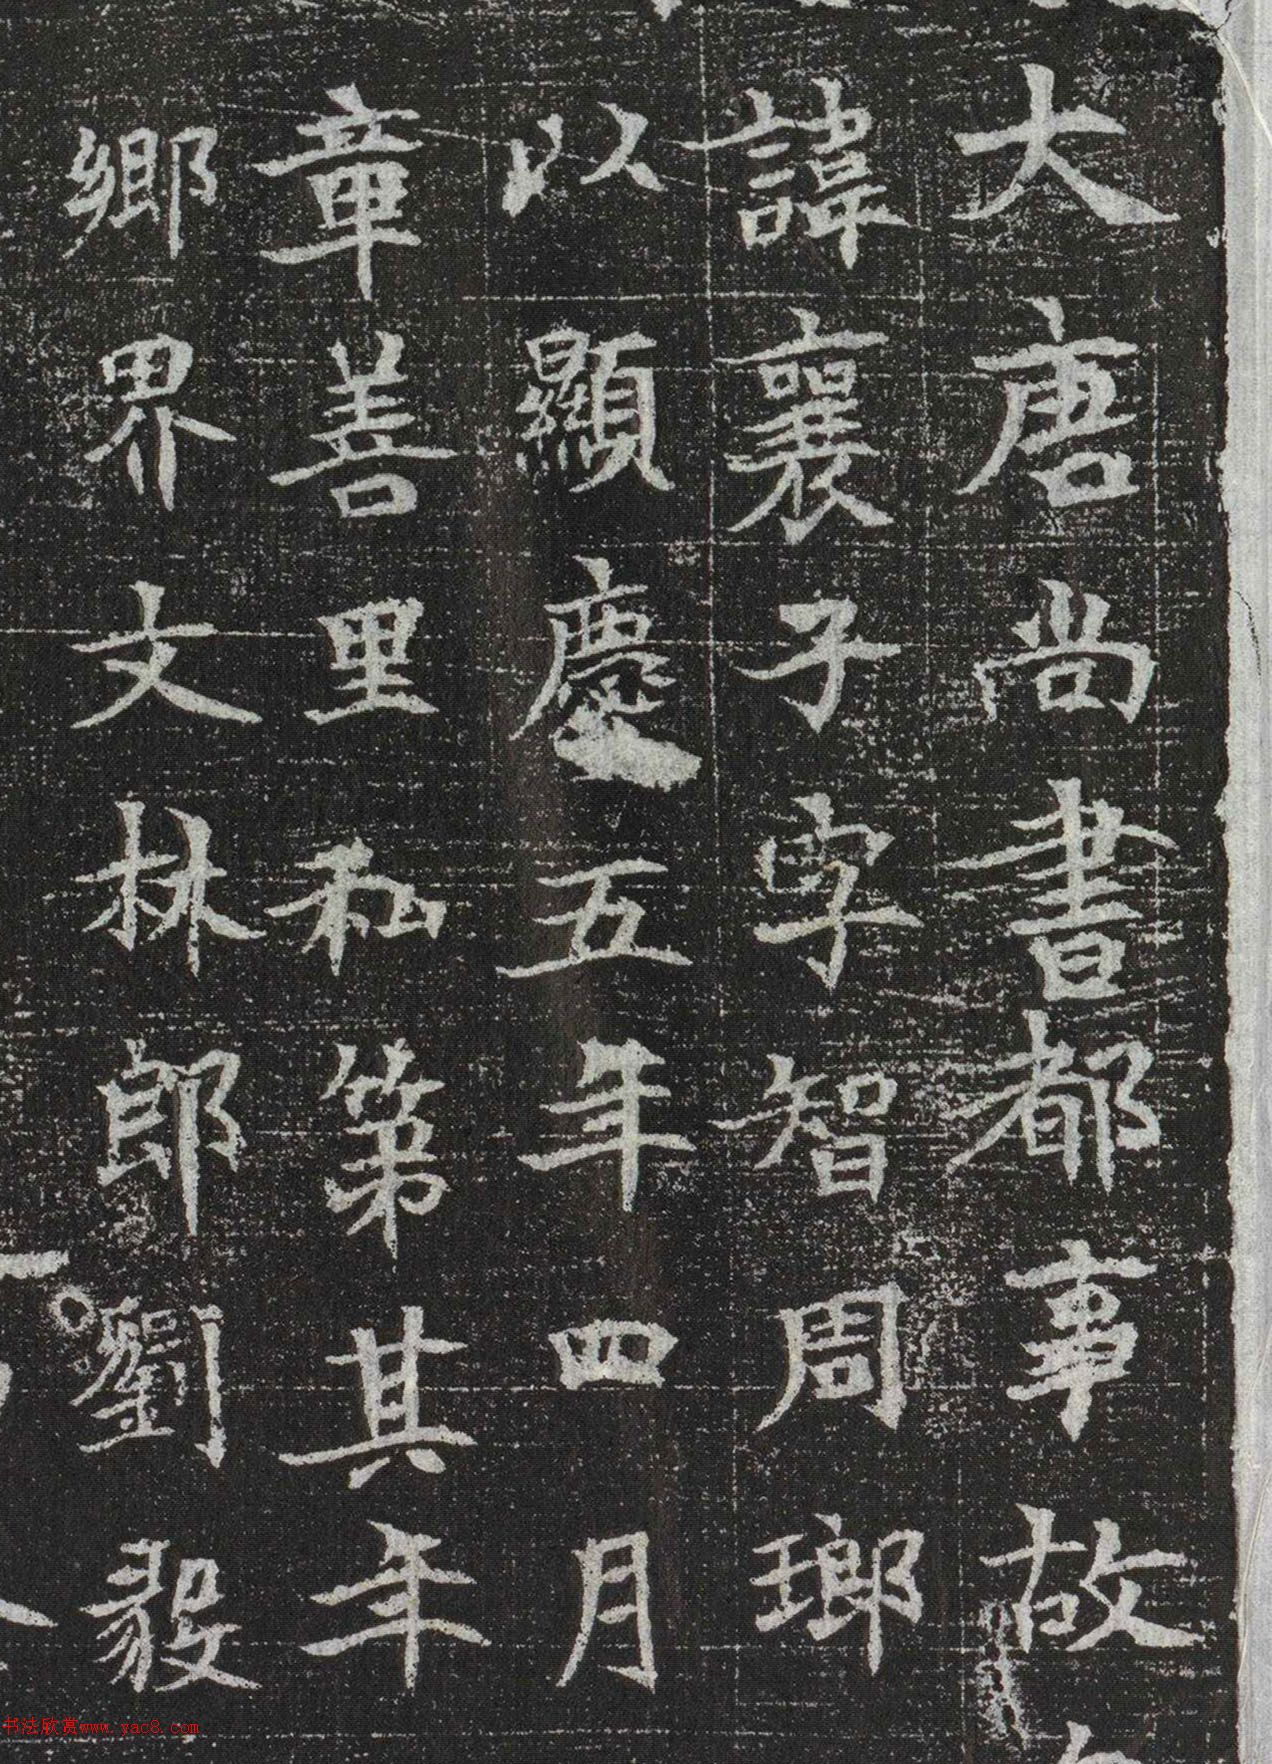 大唐尚書都事故
諱襄子字智周瑯
以顯慶五年四月
章善里私第其年
鄉界文林郎劉毅
书法欣赏www.yac8.com